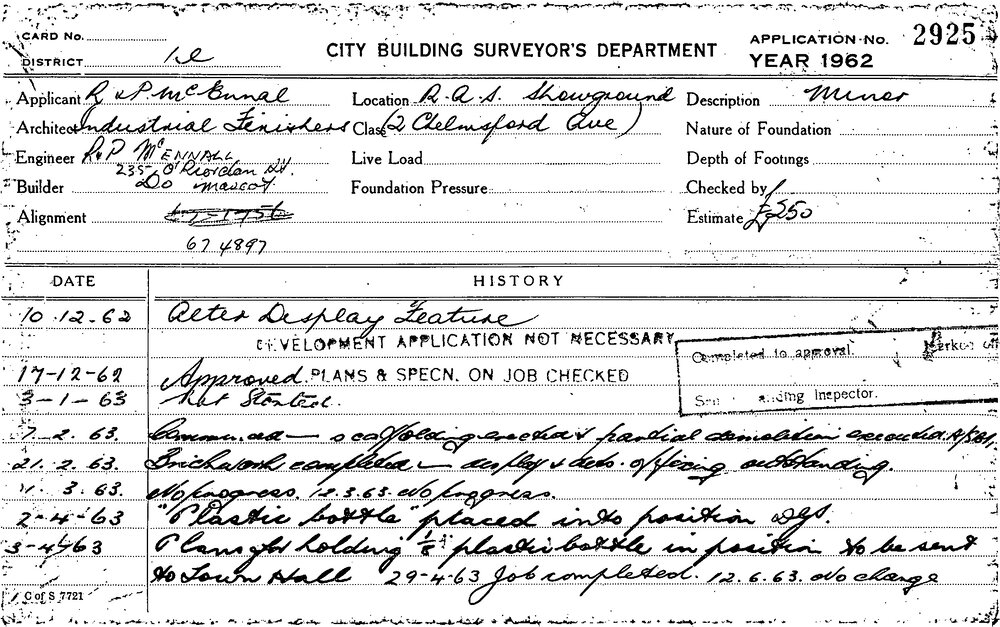 CARD No.
DISTRICT
CITY BUILDING SURVEYOR'S DEPARTMENT
APPLICATION No. 2925
YEAR 1962
Applicant R & P. McEnnal
Location R.A.S. Showground
Description Minor
Architect Industrial Finishers
Class (2 Chelmsford Ave)
Nature of Foundation
Engineer R & P McENNALL
Live Load
Depth of Footings
235 O'Riordan St.
Builder Do mascot.
Foundation Pressure
Checked by
Alignment
Estimate £250
67 4897
DATE HISTORY
10.12.62 Alter Display Feature
DEVELOPMENT APPLICATION NOT NECESSARY
Completed to approval. Marked off
17-12-62 Approved. PLANS & SPECN. ON JOB CHECKED
3-1-63 Not Started.
Building Inspector.
7.2.63. Commenced — scaffolding erected & partial demolition executed
21.2.63. Brickwork completed — display & dets. of fixing outstanding.
3.63. No progress. 12.3.63. No progress.
2-4-63 "Plastic bottle" placed into position
3-4-63 Plans for holding plastic bottle in position to be sent
to Town Hall 29-4-63 Job completed. 12.6.63. No change
C of S 7721